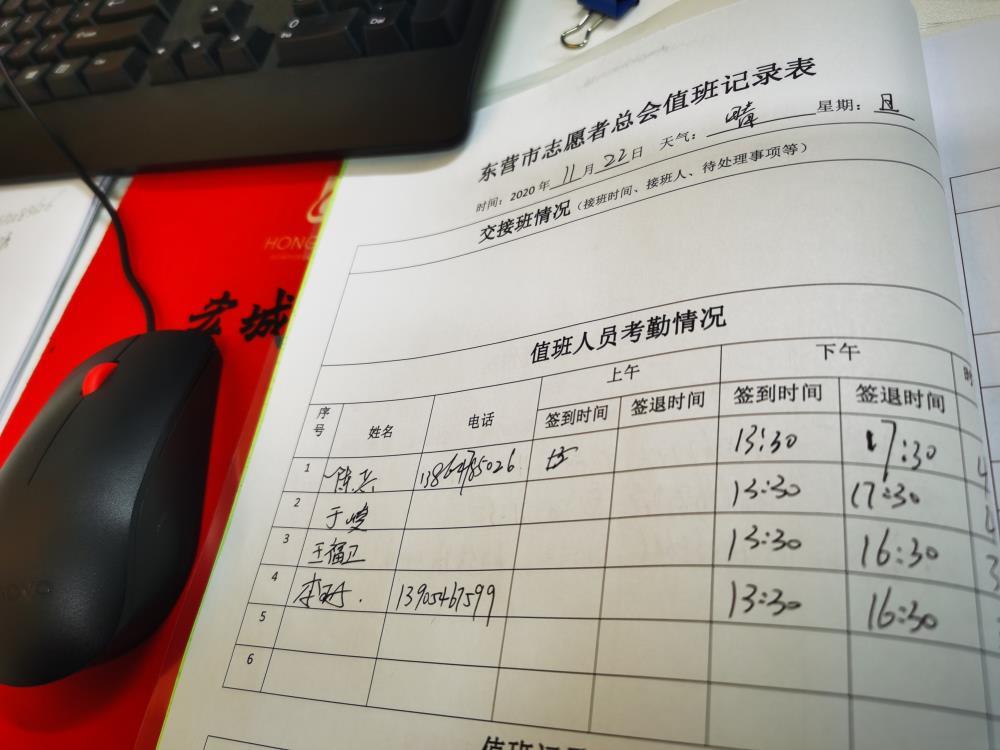 东营市志愿者总会值班记录表
时间：2020年11月22日 天气：晴 星期：日
交接班情况（接班时间、接班人、待处理事项等）
值班人员考勤情况
序号 姓名 电话 上午 下午 时
签到时间 签退时间 签到时间 签退时间
1 陈兵 13864785026 13:30 17:30 4
2 于峻 13:30 17:30
3 王福卫 13:30 16:30 3
4 13905467599 13:30 16:30
5
6
HONG
宏城